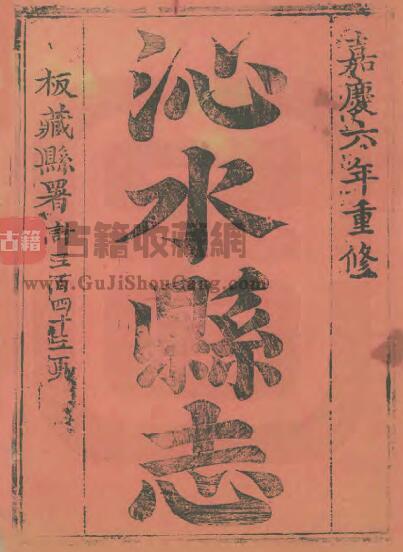 嘉慶六年重修
沁水縣志
板藏縣署計三百四十三頁
古籍
古籍收藏網
www.GuJiShouCang.com